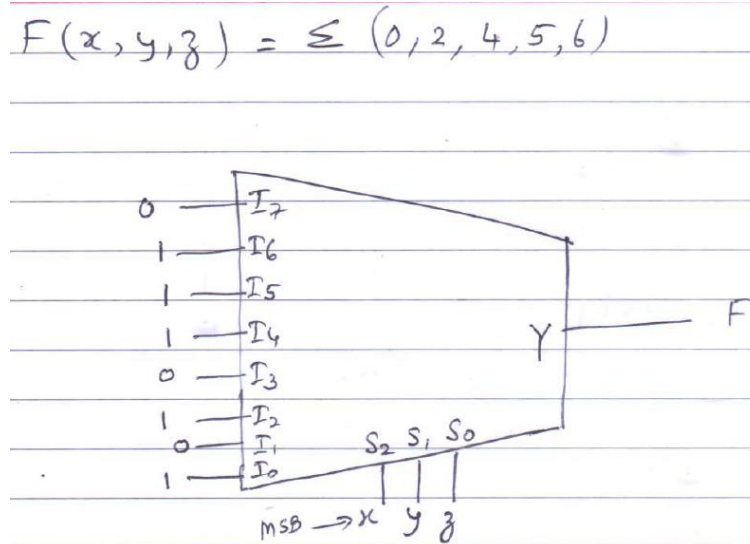 F(x, y, z) = Σ (0, 2, 4, 5, 6)
0 I7
1 I6
1 I5
1 I4
Y F
0 I3
1 I2
0 I1
1 I0
S2 S1 S0
MSB → x y z